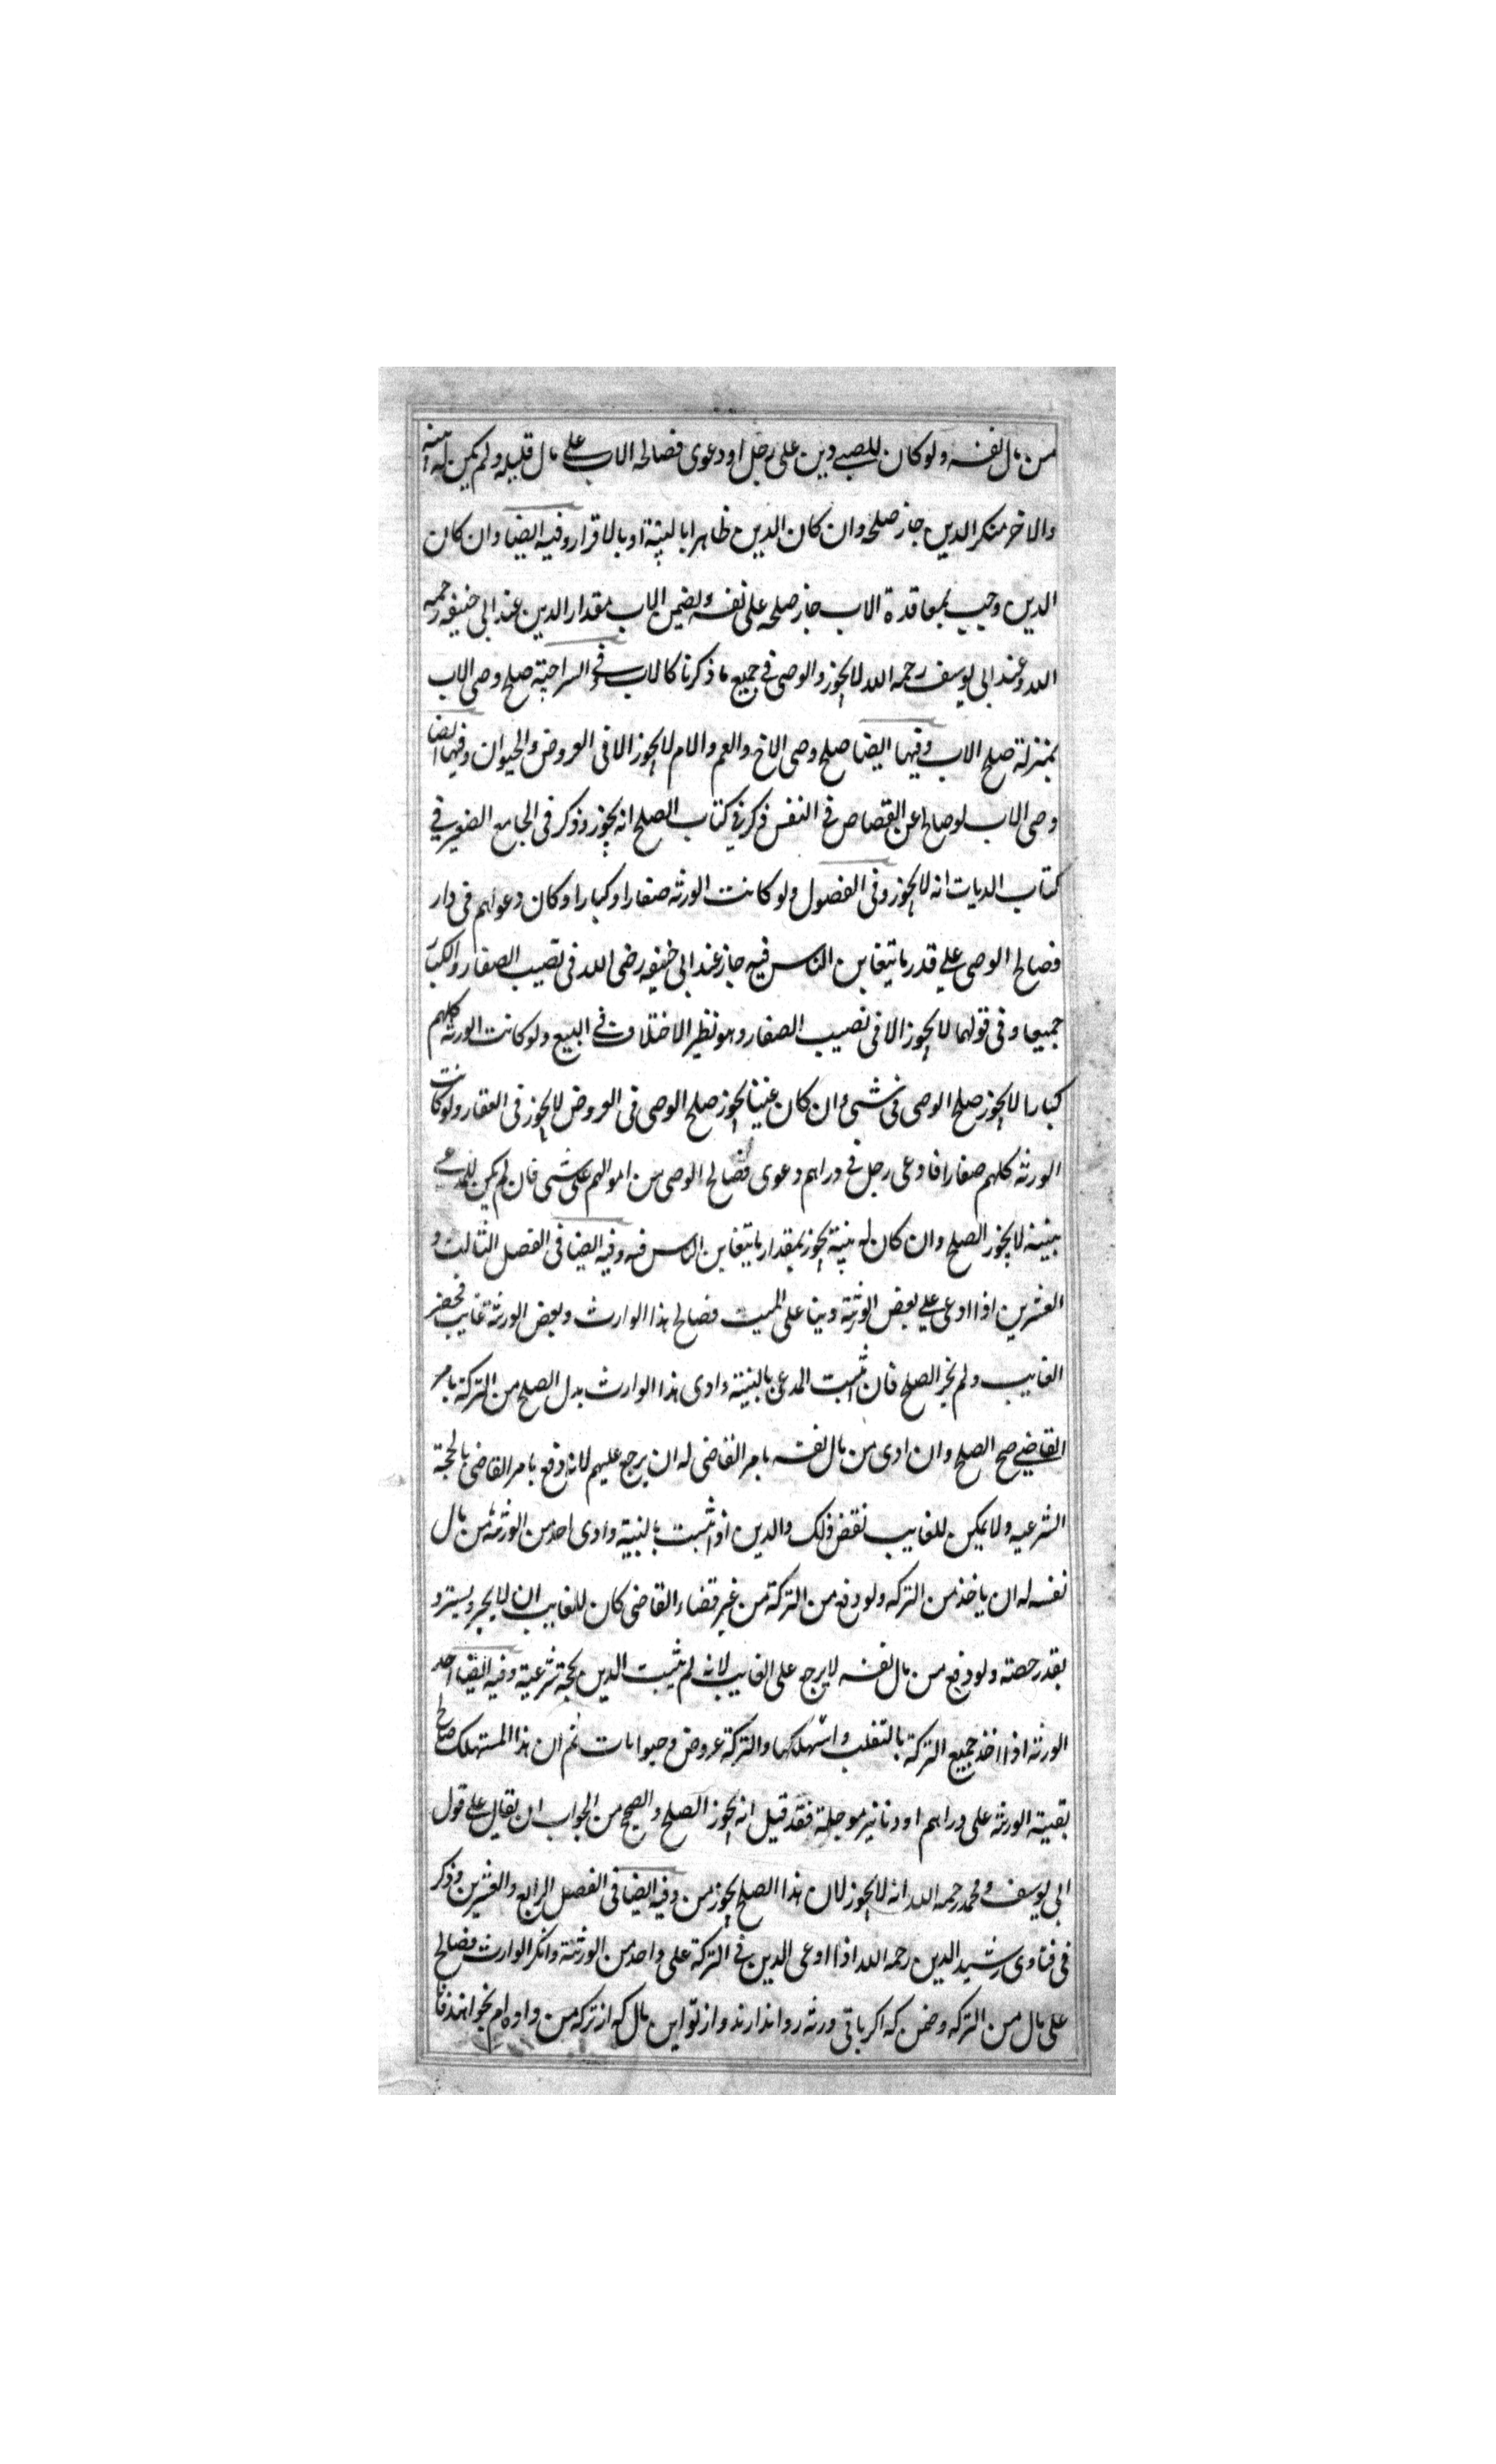 من مال نفسه ولو كان للصبي دين على رجل او دعوى فصالحه الاب على مال قليل ولم يكن له بينة
والاخر منكر الدين جاز صلحه وان كان الدين ظاهرا بالبينة او بالاقرار وفيه ايضا وان كان
الدين وجب بمعاقدة الاب جاز صلحه على نفسه ويضمن الاب مقدار الدين عند ابى حنيفه رحمه
الله وعند ابى يوسف رحمه الله لا يجوز والوصى فى جميع ما ذكرنا كالاب وفى السراجية صلح وصى الاب
بمنزلة صلح الاب وفيها ايضا صلح وصى الاخ والعم والام لا يجوز الا فى العروض والحيوان وفيها ايضا
وصى الاب لو صالح عن القصاص فى النفس ذكر فى كتاب الصلح انه يجوز وذكر فى الجامع الصغير فى
كتاب الديات انه لا يجوز وفى الفصول ولو كانت الورثه صغارا وكبارا وكان دعواهم فى دار
فصالح الوصى على قدر ما يتغابن الناس فيه جاز عند ابى حنيفه رضى الله فى نصيب الصغار والكبار
جميعا وفى قولهما لا يجوز الا فى نصيب الصغار وهو نظير الاختلاف فى البيع ولو كانت الورثه كلهم
كبارا لا يجوز صلح الوصى فى شىء وان كان غيبا يجوز صلح الوصى فى العروض لا يجوز فى العقار ولو كانت
الورثه كلهم صغارا فادعى رجل فى دراهم دعوى فصالح الوصى من اموالهم على شىء فان لم يكن للمدعى
بينة لا يجوز الصلح وان كان له بينة يجوز بمقدار ما يتغابن الناس فيه وفيه ايضا فى الفصل الثالث و
العشرين اذا ادعى على بعض الورثة دينا على الميت فصالح هذا الوارث وبعض الورثة غايب فحضر
الغايب ولم يجز الصلح فان اثبت المدعى بالبينة وادى هذا الوارث بدل الصلح من التركة بامر
القاضى صح الصلح وان ادى من مال نفسه بامر القاضى له ان يرجع عليهم لانه دفع بامر القاضى بالحجة
الشرعيه ولا يمكن للغايب نقض ذلك والدين اذا اثبت بالبينة وادى احد من الورثة من مال
نفسه له ان ياخذ من التركه ولو دفع من التركة من غير قضاء القاضى كان للغايب ان لا يجيز ويسترد
بقدر حصته ولو دفع من مال نفسه لا يرجع على الغايب لانه لم يثبت الدين بحجة شرعية وفيه ايضا احد
الورثه اذا اخذ جميع التركة بالتغلب واستهلكها والتركة عروض وحيوانات ثم ان هذا المستهلك صالح
بقية الورثه على دراهم او دنانير موجلة فقد قيل انه يجوز الصلح والصحيح من الجواب ان يقال على قول
ابى يوسف ومحمد رحمه الله انه لا يجوز لان هذا الصلح يجوز من وفيه ايضا فى الفصل الرابع والعشرين وذكر
فى فتاوى رشيد الدين رحمه الله اذا ادعى الدين فى التركة على واحد من الورثة وانكر الوارث فصالح
على مال من التركه وضمن كه اكر باقى ورثه روا ندارند واز تو اين مال كه از تركه من داده ام بخواهند